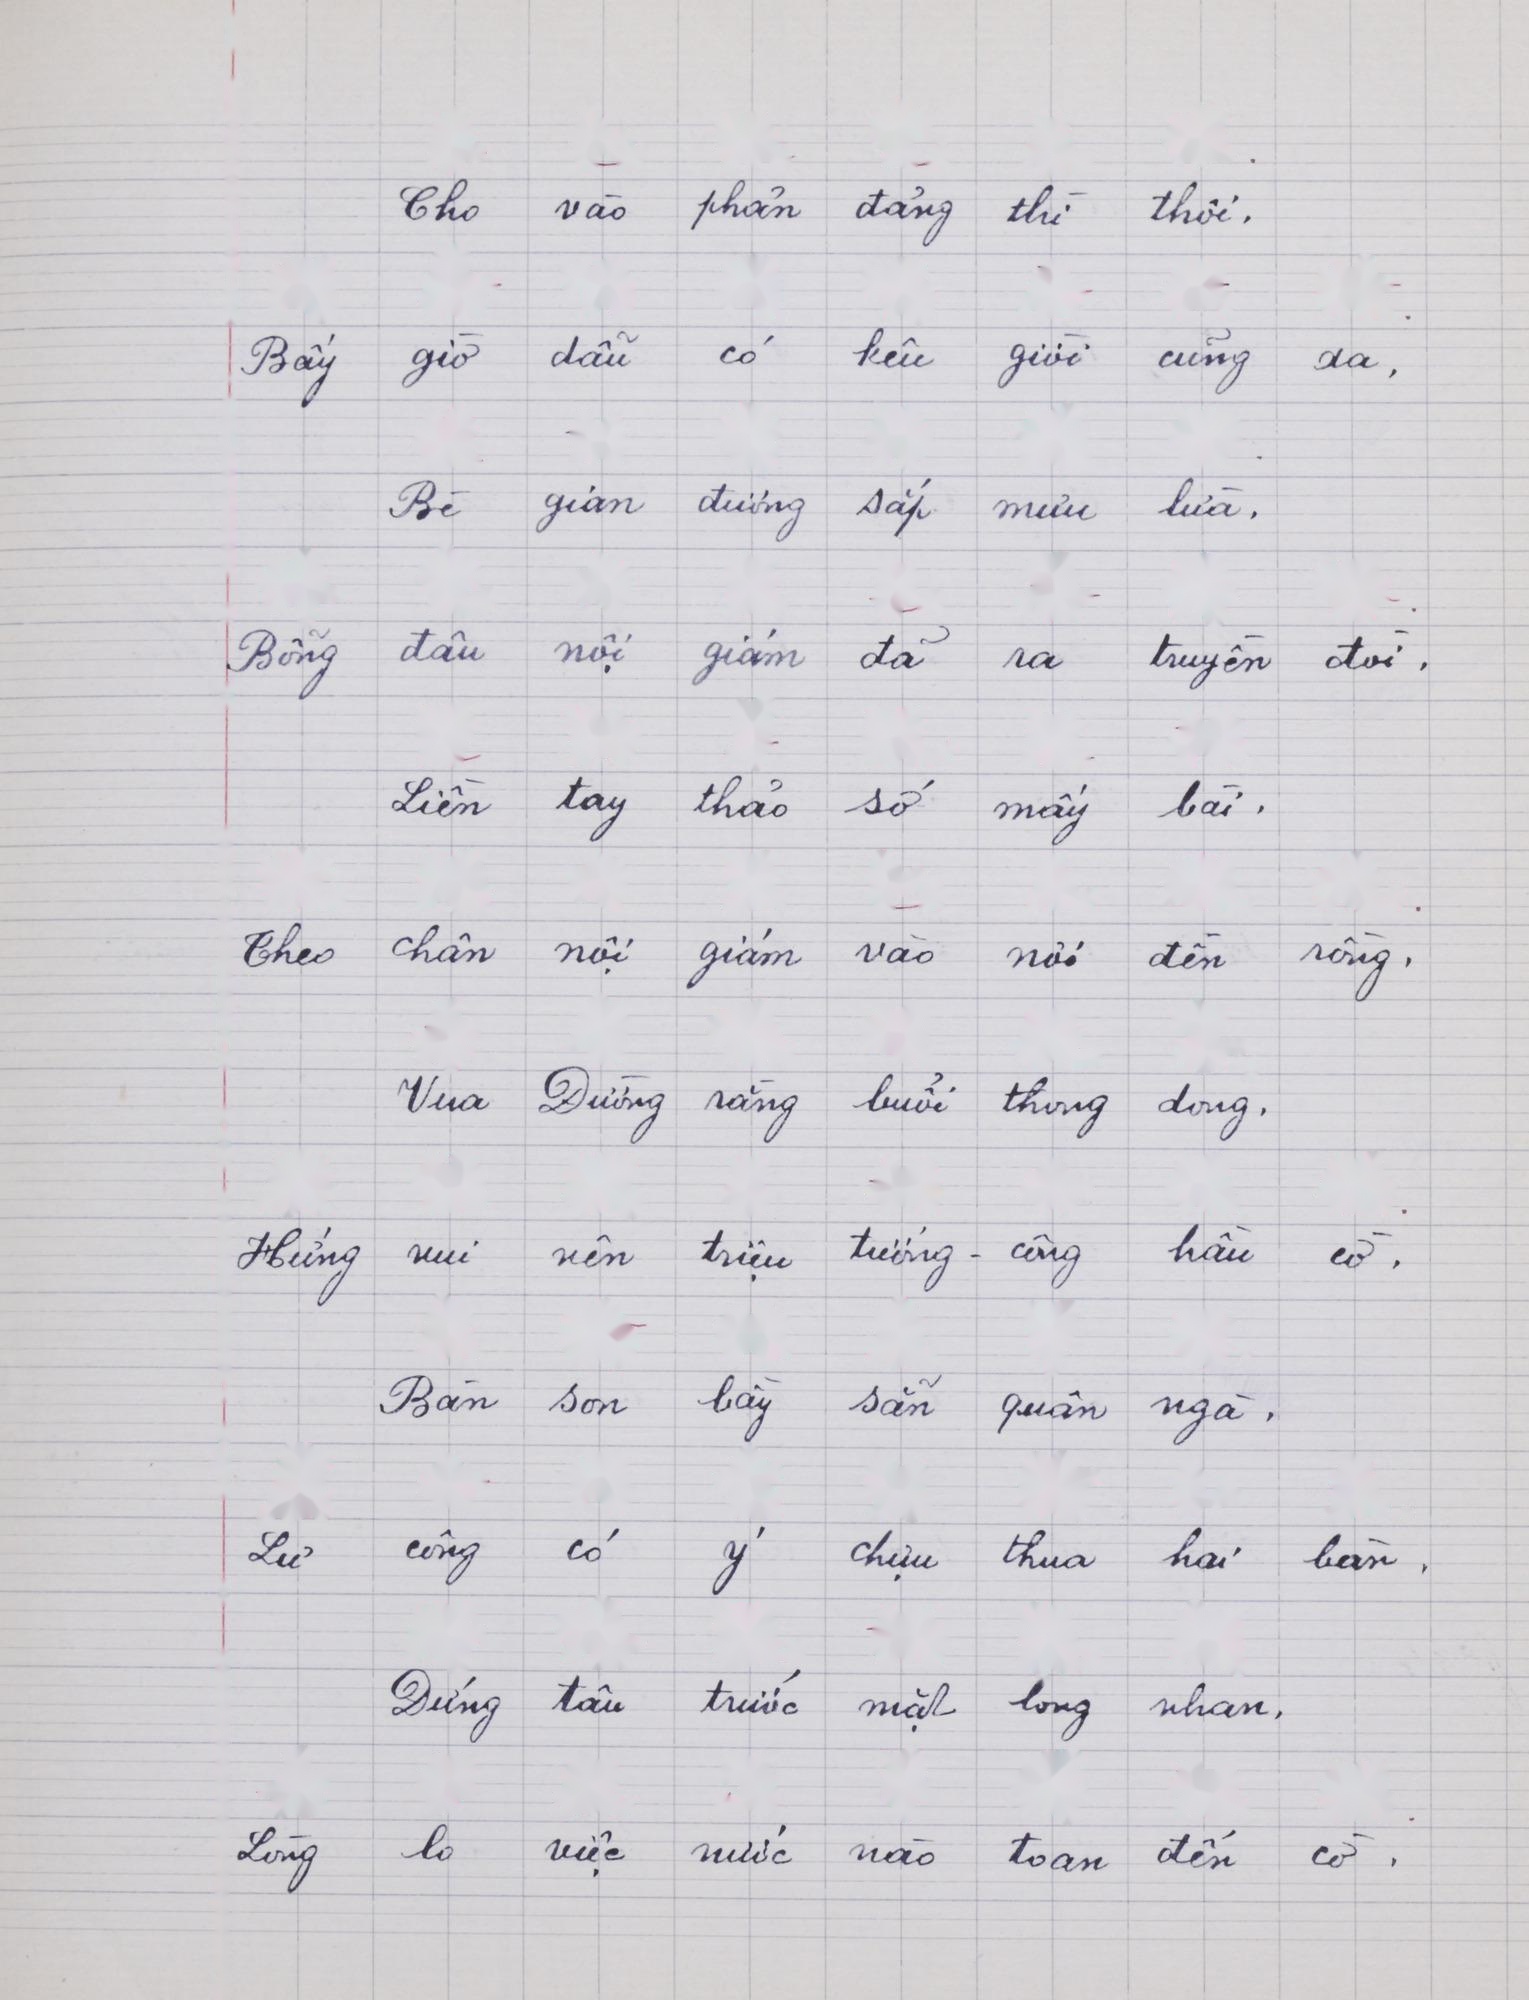 Cho vào phản đảng thì thôi.
Bấy giờ dẫu có kêu giời cũng xa,
Bè gian đương sắp mưu lừa.
Bỗng đâu nội giám đã ra truyền đòi.
Liền tay thảo sớ mấy bài.
Theo chân nội giám vào nơi đền rồng.
Vua Đường rằng buổi thong dong.
Hứng vui nên triệu tướng-công hầu cờ.
Bàn son bày sẵn quân ngà.
Lư công có ý chịu thua hai bàn.
Đứng tâu trước mặt long nhan.
Lòng lo việc nước nào toan đến cờ.